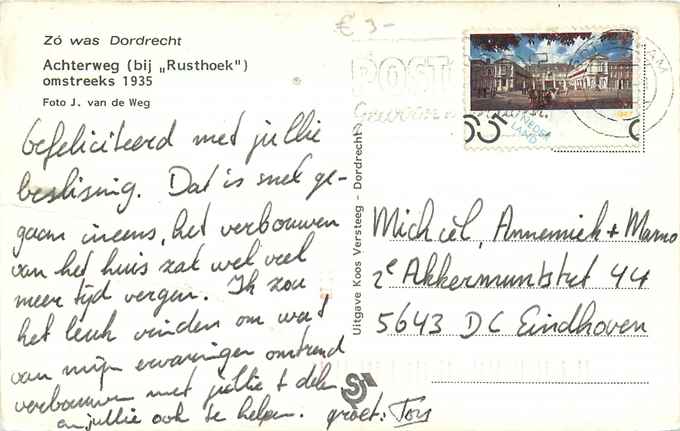 € 3-
Zó was Dordrecht
Achterweg (bij „Rusthoek")
omstreeks 1935
Foto J. van de Weg
POST
NEDER
LAND
Uitgave Koos Versteeg - Dordrecht
Gefeliciteerd met jullie
beslissing. Dat is snel ge-
gaan ineens, het verbouwen
van het huis zal wel veel
meer tijd vergen. Ik zou
het leuk vinden om wat
van mijn ervaringen omtrend
verbouwen met jullie t delen
en jullie ook te helpen. groet:
Michiel, Annemiek + Mamo
2e Akkermuntstrt 44
5643 DC Eindhoven